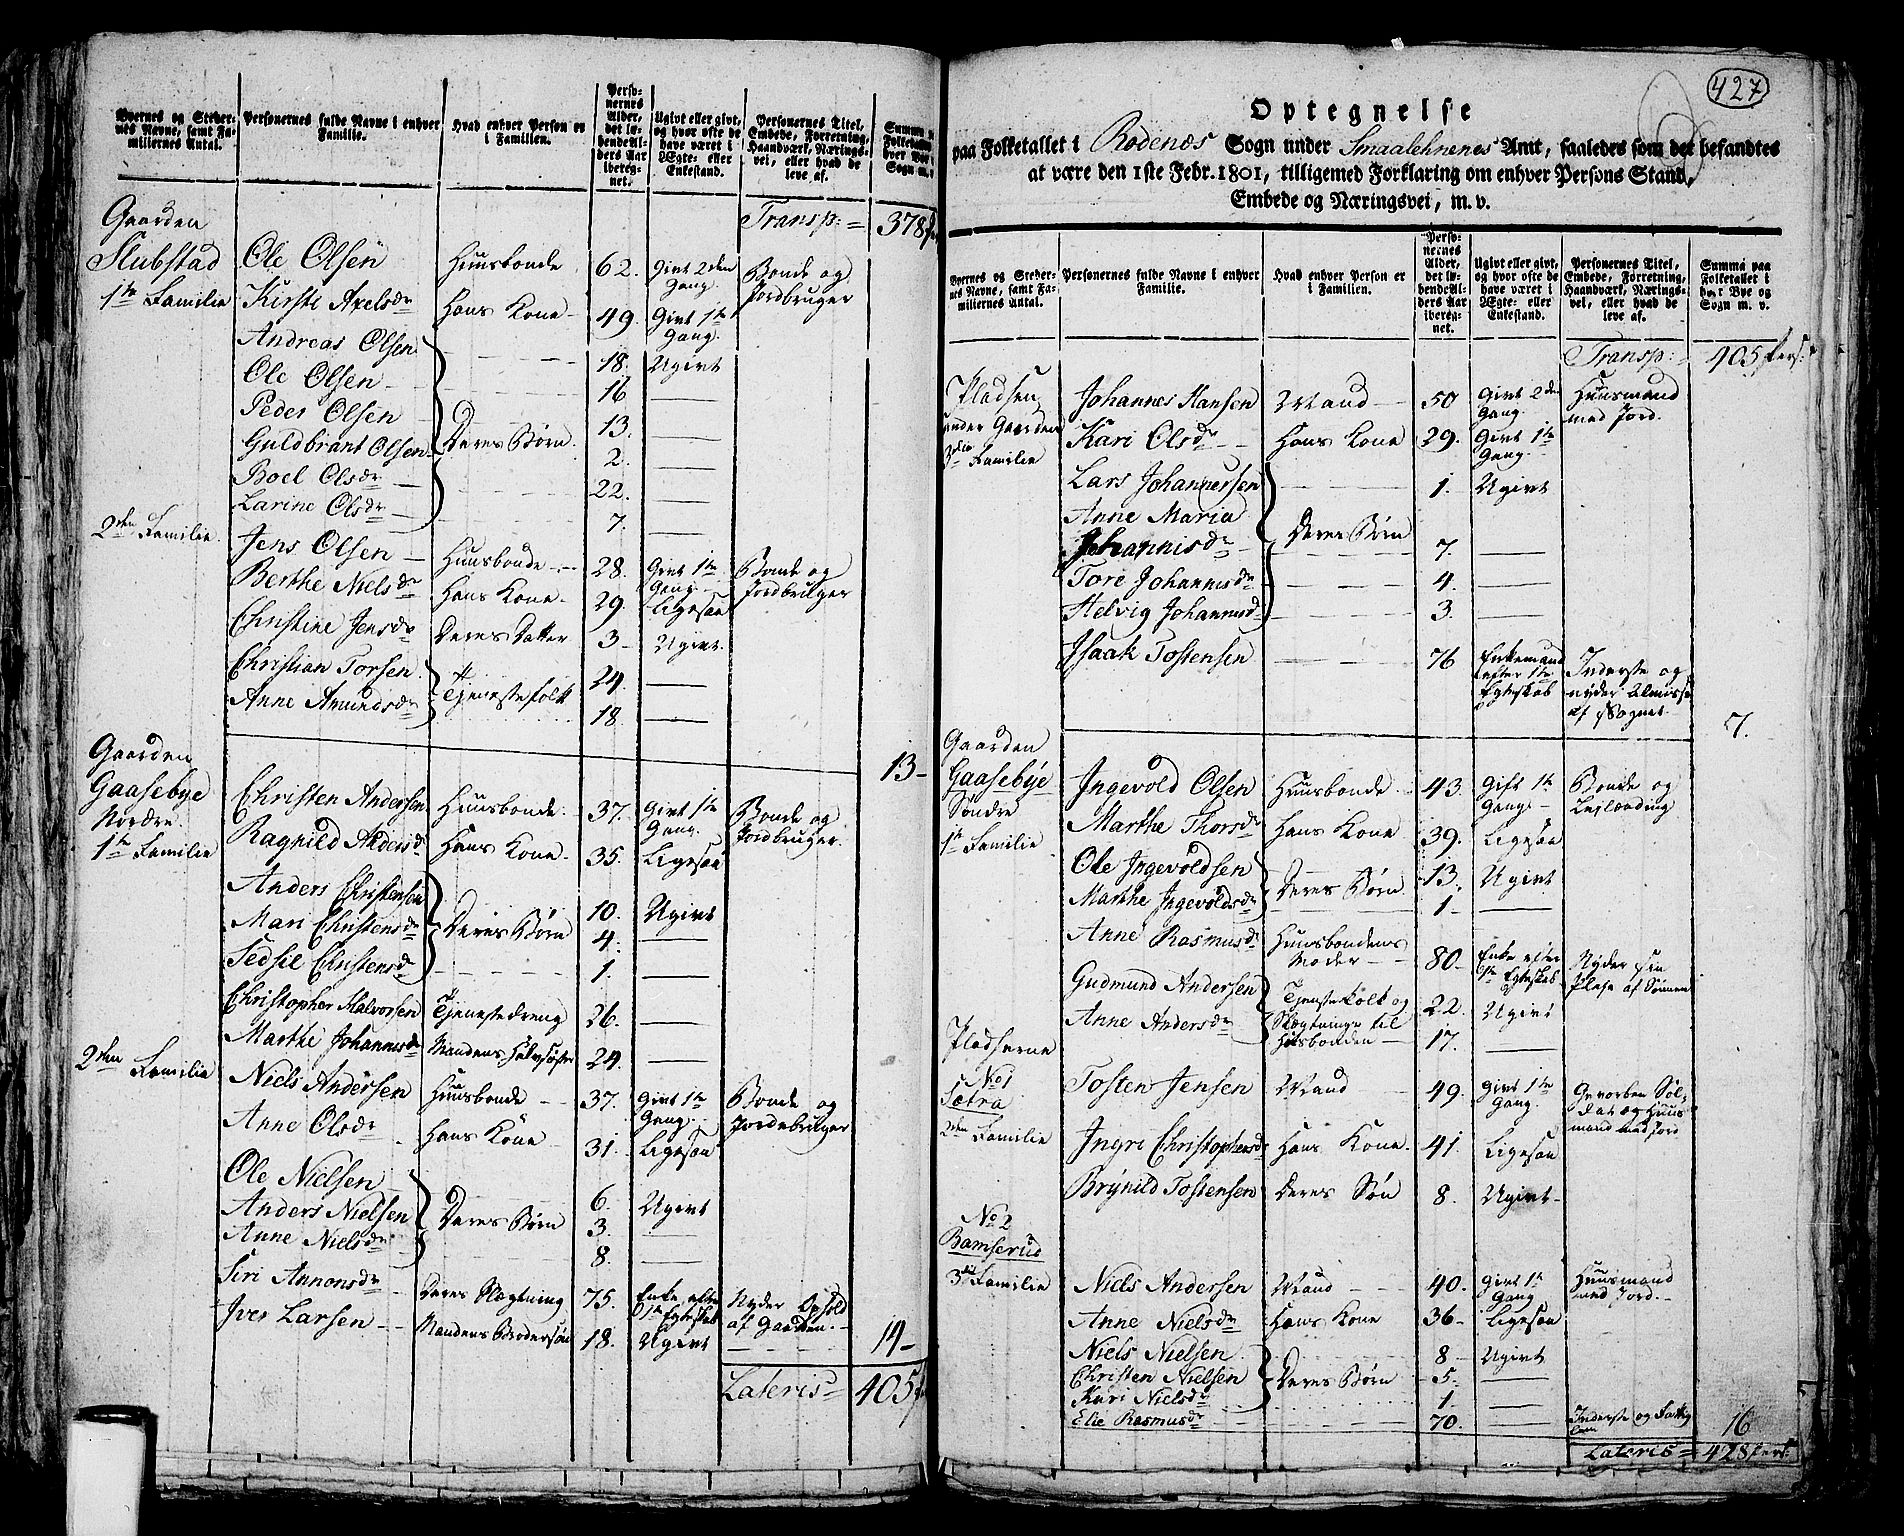 Byernes og Steder-
nes Navne, samt Fa-
miliernes Antal.
Personernes fulde Navne i enhver
Familie.
Hvad enhver Person er
i Familien.
Perso-
nernes
Alder,
det lø-
bende Al-
ders Aar
iberegnet.
Ugivt eller givt,
og hvor ofte de
have været i
Ægte- eller
Enkestand.
Personernes Titel,
Embede, Forretning,
Haandværk, Nærings-
vei, eller hvad de
leve af.
Transp: = 378
Gaarden
Slubstad
1te Familie
Ole Olsen Huusbonde 62. Givt 2den Gang Bonde og Jordbruger
Kirsti Axelsdr Hans Kone 49. Givt 1te Gang
Andreas Olsen 18. Ugivt
Ole Olsen 16 —
Peder Olsen 13. —
Guldbrant Olsen Deres Børn 2. —
Boel Olsdr 22. —
Larine Olsdr 7. —
2den Familie
Jens Olsen Huusbonde 28. Givt 1te Gang Bonde og Jordbruger
Berthe Nielsdr Hans Kone 29. Ligesaa
Christine Jensdr Deres Datter 3 Ugivt
Christian Torsen Tjenestefolk 24. —
Anne Amundsdr 18. —
13
Gaarden
Gaasebye
Nordre
1te Familie
Christen Andersen Huusbonde 37. Givt 1te Gang Bonde og Jordbruger
Ragnild Andersdr Hans Kone 35. Ligesaa
Anders Christensen 10. Ugivt
Mari Christensdr Deres Børn 4. —
Sedsil Christensdr 1. —
Christopher Halvorsen Tjenestedreng 26. —
Marthe Johannesdr Mandens Halvsøster 24. —
2den Familie
Niels Andersen Huusbonde 37. Givt 1te Gang Bonde og Jordebruger
Anne Olsdr Hans Kone 31. Ligesaa
Ole Nielsen 6. Ugivt
Anders Nielsen Deres Børn 3. —
Anne Nielsdr 8. —
Siri Annonsdr Deres Slægtning 75. Enke efter 1te Egteskab Nyder Ophold af Gaarden
Iver Larsen Mandens Brodersøn 18. Ugivt
14
Lateris = 405
427
Optegnelse
paa Folketallet i Rødenæs Sogn under Smaalehnenes Amt, saaledes som det befandtes
at være den 1ste Febr. 1801, tilligemed Forklaring om enhver Persons Stand,
Embede og Næringsvei, m. v.
Byernes og Steder-
nes Navne, samt Fa-
miliernes Antal.
Personernes fulde Navne i enhver
Familie.
Hvad enhver Person er
i Familien.
Perso-
nernes
Alder,
det lø-
bende Al-
ders Aar
iberegnet.
Ugivt eller givt,
og hvor ofte de
have været i
Ægte- eller
Enkestand.
Personernes Titel,
Embede, Forretning,
Haandværk, Nærings-
vei, eller hvad de
leve af.
Summa paa
Folketallet i
hver Bye og
Sogn m. v.
Transp: = 405 Pers:
Pladsen
under Gaarden
3die Familie
Johannes Hansen Mand 50 Givt 2den Gang Huusmand med Jord.
Kari Olsdr Hans Kone 29. Givt 1te Gang
Lars Johannessen 1. Ugivt
Anne Maria
Johannisdr Deres Børn 7. —
Tore Johannisdr 4. —
Helvig Johannisdr 3.
Isaak Tostensen 76 Enkemand efter 1te Egteskab Inderste og nyder Almisse af Sognet
7.
Gaarden
Gaasebye
Søndre
1te Familie
Ingevold Olsen Huusbonde 43. Gift 1te Gang Bonde og Leylænding
Marthe Thorsdr Hans Kone 39. Ligesaa
Ole Ingevoldsen Deres Børn 13. Ugivt
Marthe Ingevoldsdr 1 —
Anne Rasmusdr Huusbondens Moder 80 Enke efter 1te Egteskab Nyder sin Pleje af Sønnen
Gudmund Andersen Tjenestefolk og 22. Ugivt
Anne Andersdr Slægtninge til Husbonden 17. —
Pladserne
No 1
Sætra
2den Familie
Tosten Jensen Mand 49. Givt 1te Gang Gevorben Sol-
dat og Huus
mand med Jord
Ingri Christophersdr Hans Kone 41. Ligesaa
Brynild Tostensen Deres Søn 8. Ugivt
No 2
Bamserud
3die Familie
Niels Andersen Mand 40. Givt 1te Gang Huusmand med Jord
Anne Nielsdr Hans Kone 36 Ligesaa
Niels Nielsen 8 Ugivt
Christen Nielsen Deres Børn 5. —
Kari Nielsdr 1. —
Elie Rasmusdr 70. — Inderste og Fattig
16
Lateris = 428 Pers: